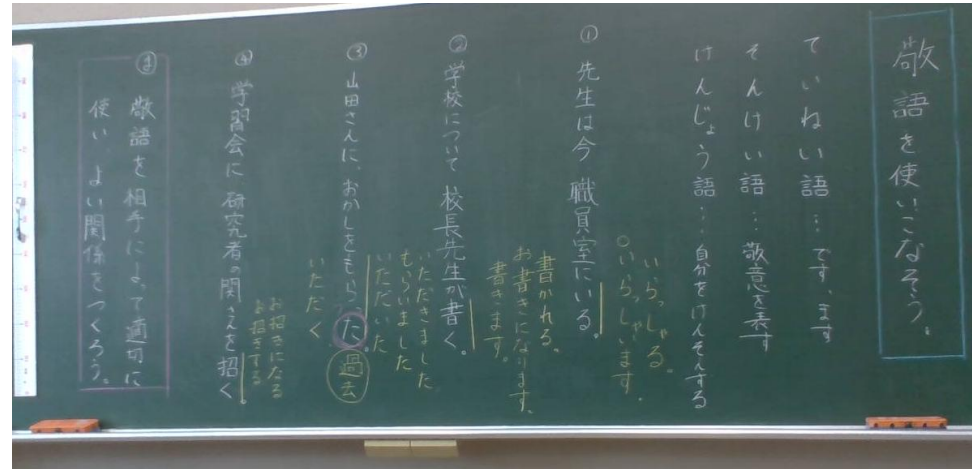 敬語を使いこなそう。
ていねい語…です、ます
そんけい語…敬意を表す
けんじょう語…自分をけんそんする
① 先生は今 職員室にいる。
いらっしゃる。
○いらっしゃいます。
② 学校について 校長先生が書く。
書かれる。
お書きになります。
書きます。
③ 山田さんに、おかしをもらった。
過去
いただきました
もらいました
いただいた
いただく
④ 学習会に 研究者の関さんを招く。
お招きになる
お招きする
ま 敬語を相手によって適切に
使い、よい関係をつくろう。